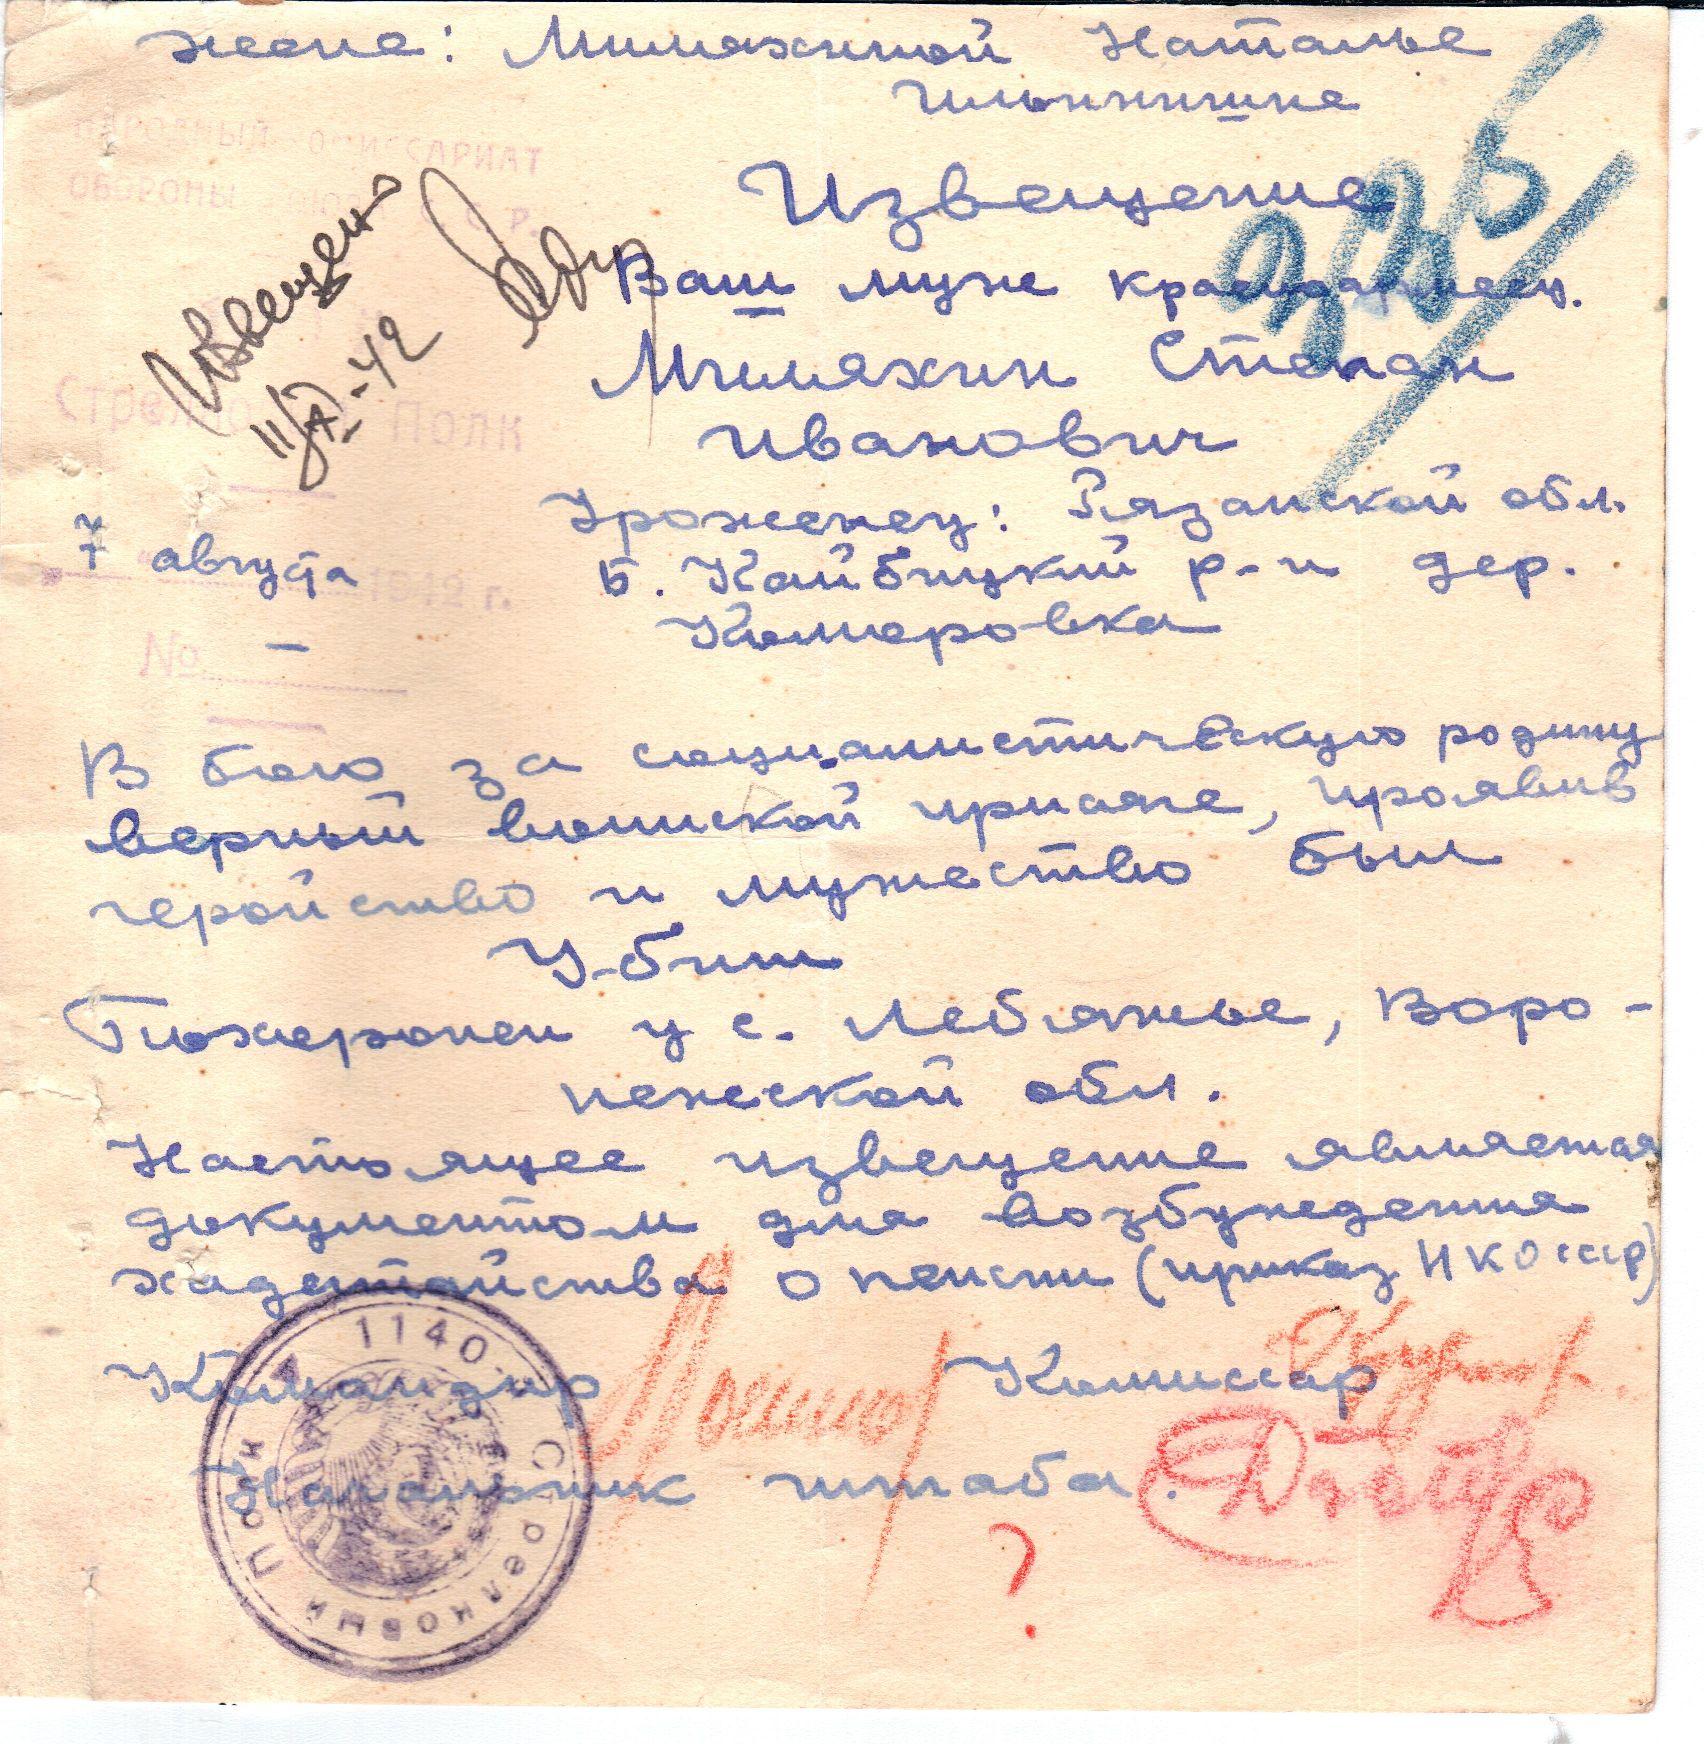 жене: Миляхиной Наталье
Ильиничне
НАРОДНЫЙ КОМИССАРИАТ
ОБОРОНЫ СОЮЗА С.С.Р.
Извещение
Извещен
11/X-42
Ваш муж красноармеец.
Миляхин Степан
Иванович
Стрелковый Полк
Уроженец: Рязанской обл.
7 августа 1942 г.
Б. Кайбицкий р-н дер.
Комаровка
№ –
В бою за социалистическую родину
верный воинской присяге, проявив
геройство и мужество был
Убит
Похоронен у с. Лебяжье, Воро-
нежской обл.
Настоящее извещение является
документом для возбуждения
ходатайства о пенсии (приказ НКО СССР)
Командир Комиссар
Начальник штаба.
1140 Стрелковый Полк
?